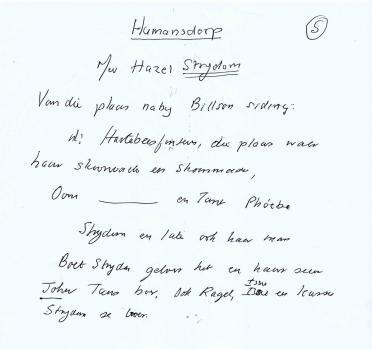 Humansdorp
5
M/w Hazel Strydom
Van die plaas naby Billson siding.
nl: Hartebeesfontein, die plaas waar
haar skoonvader en skoonmoeder,
Oom ______ en Tant Phoebe
Strydom en later ook haar man
Boet Strydom geboer het en haar seun
John Tans boer. Ook Ragel, en
Strydom se